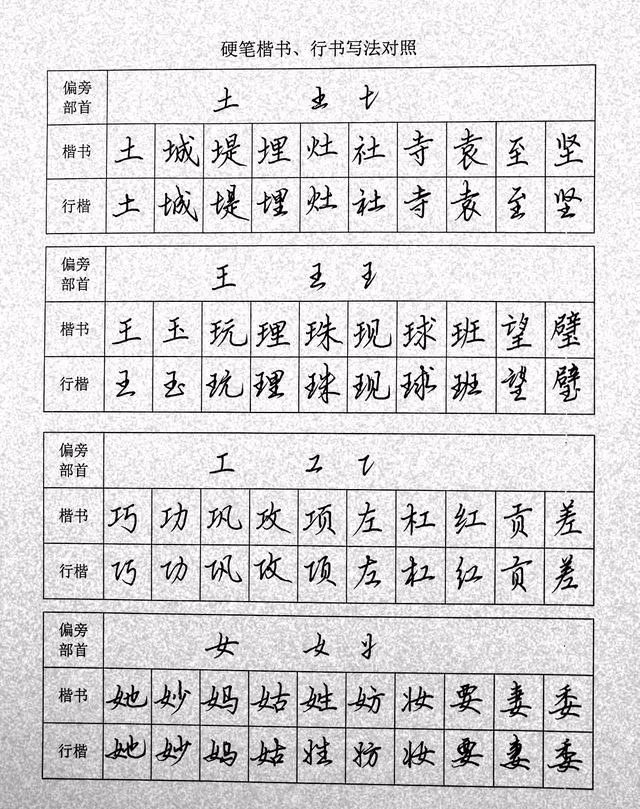 硬笔楷书、行书写法对照
偏旁部首 土 土 土
楷书 土 城 堤 埋 灶 社 寺 袁 至 坚
行楷 土 城 堤 埋 灶 社 寺 袁 至 坚
偏旁部首 王 王 王
楷书 王 玉 玩 理 珠 现 球 班 望 璧
行楷 王 玉 玩 理 珠 现 球 班 望 璧
偏旁部首 工 工 工
楷书 巧 功 巩 攻 项 左 杠 红 贡 差
行楷 巧 功 巩 攻 项 左 杠 红 贡 差
偏旁部首 女 女 女
楷书 她 妙 妈 姑 姓 妨 妆 要 妻 委
行楷 她 妙 妈 姑 姓 妨 妆 要 妻 委